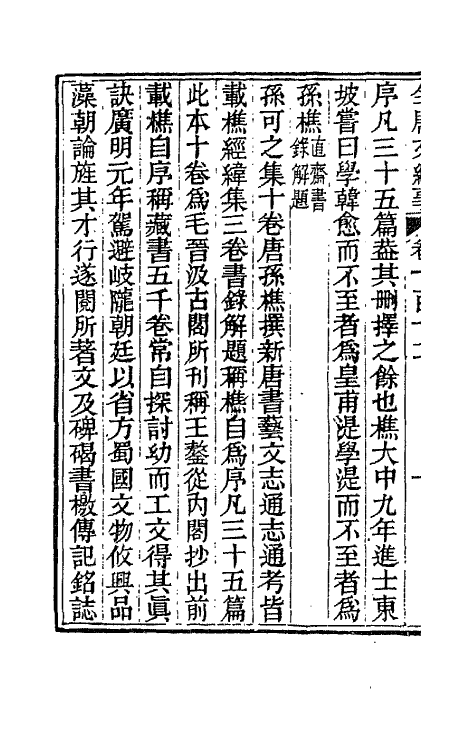 序凡三十五篇葢其刪擇之餘也樵大中九年進士東
坡嘗曰學韓愈而不至者爲皇甫湜學湜而不至者爲
孫樵直齋書錄解題
孫可之集十卷唐孫樵撰新唐書藝文志通志通考皆
載樵經緯集三卷書錄解題稱樵自爲序凡三十五篇
此本十卷爲毛晉汲古閣所刊稱王鏊從內閣抄出前
載樵自序稱藏書五千卷常自探討幼而工文得其眞
訣廣明元年駕避岐隴朝廷以省方蜀國文物攸興品
藻朝論旌其才行遂閱所著文及碑碣書檄傳記銘誌